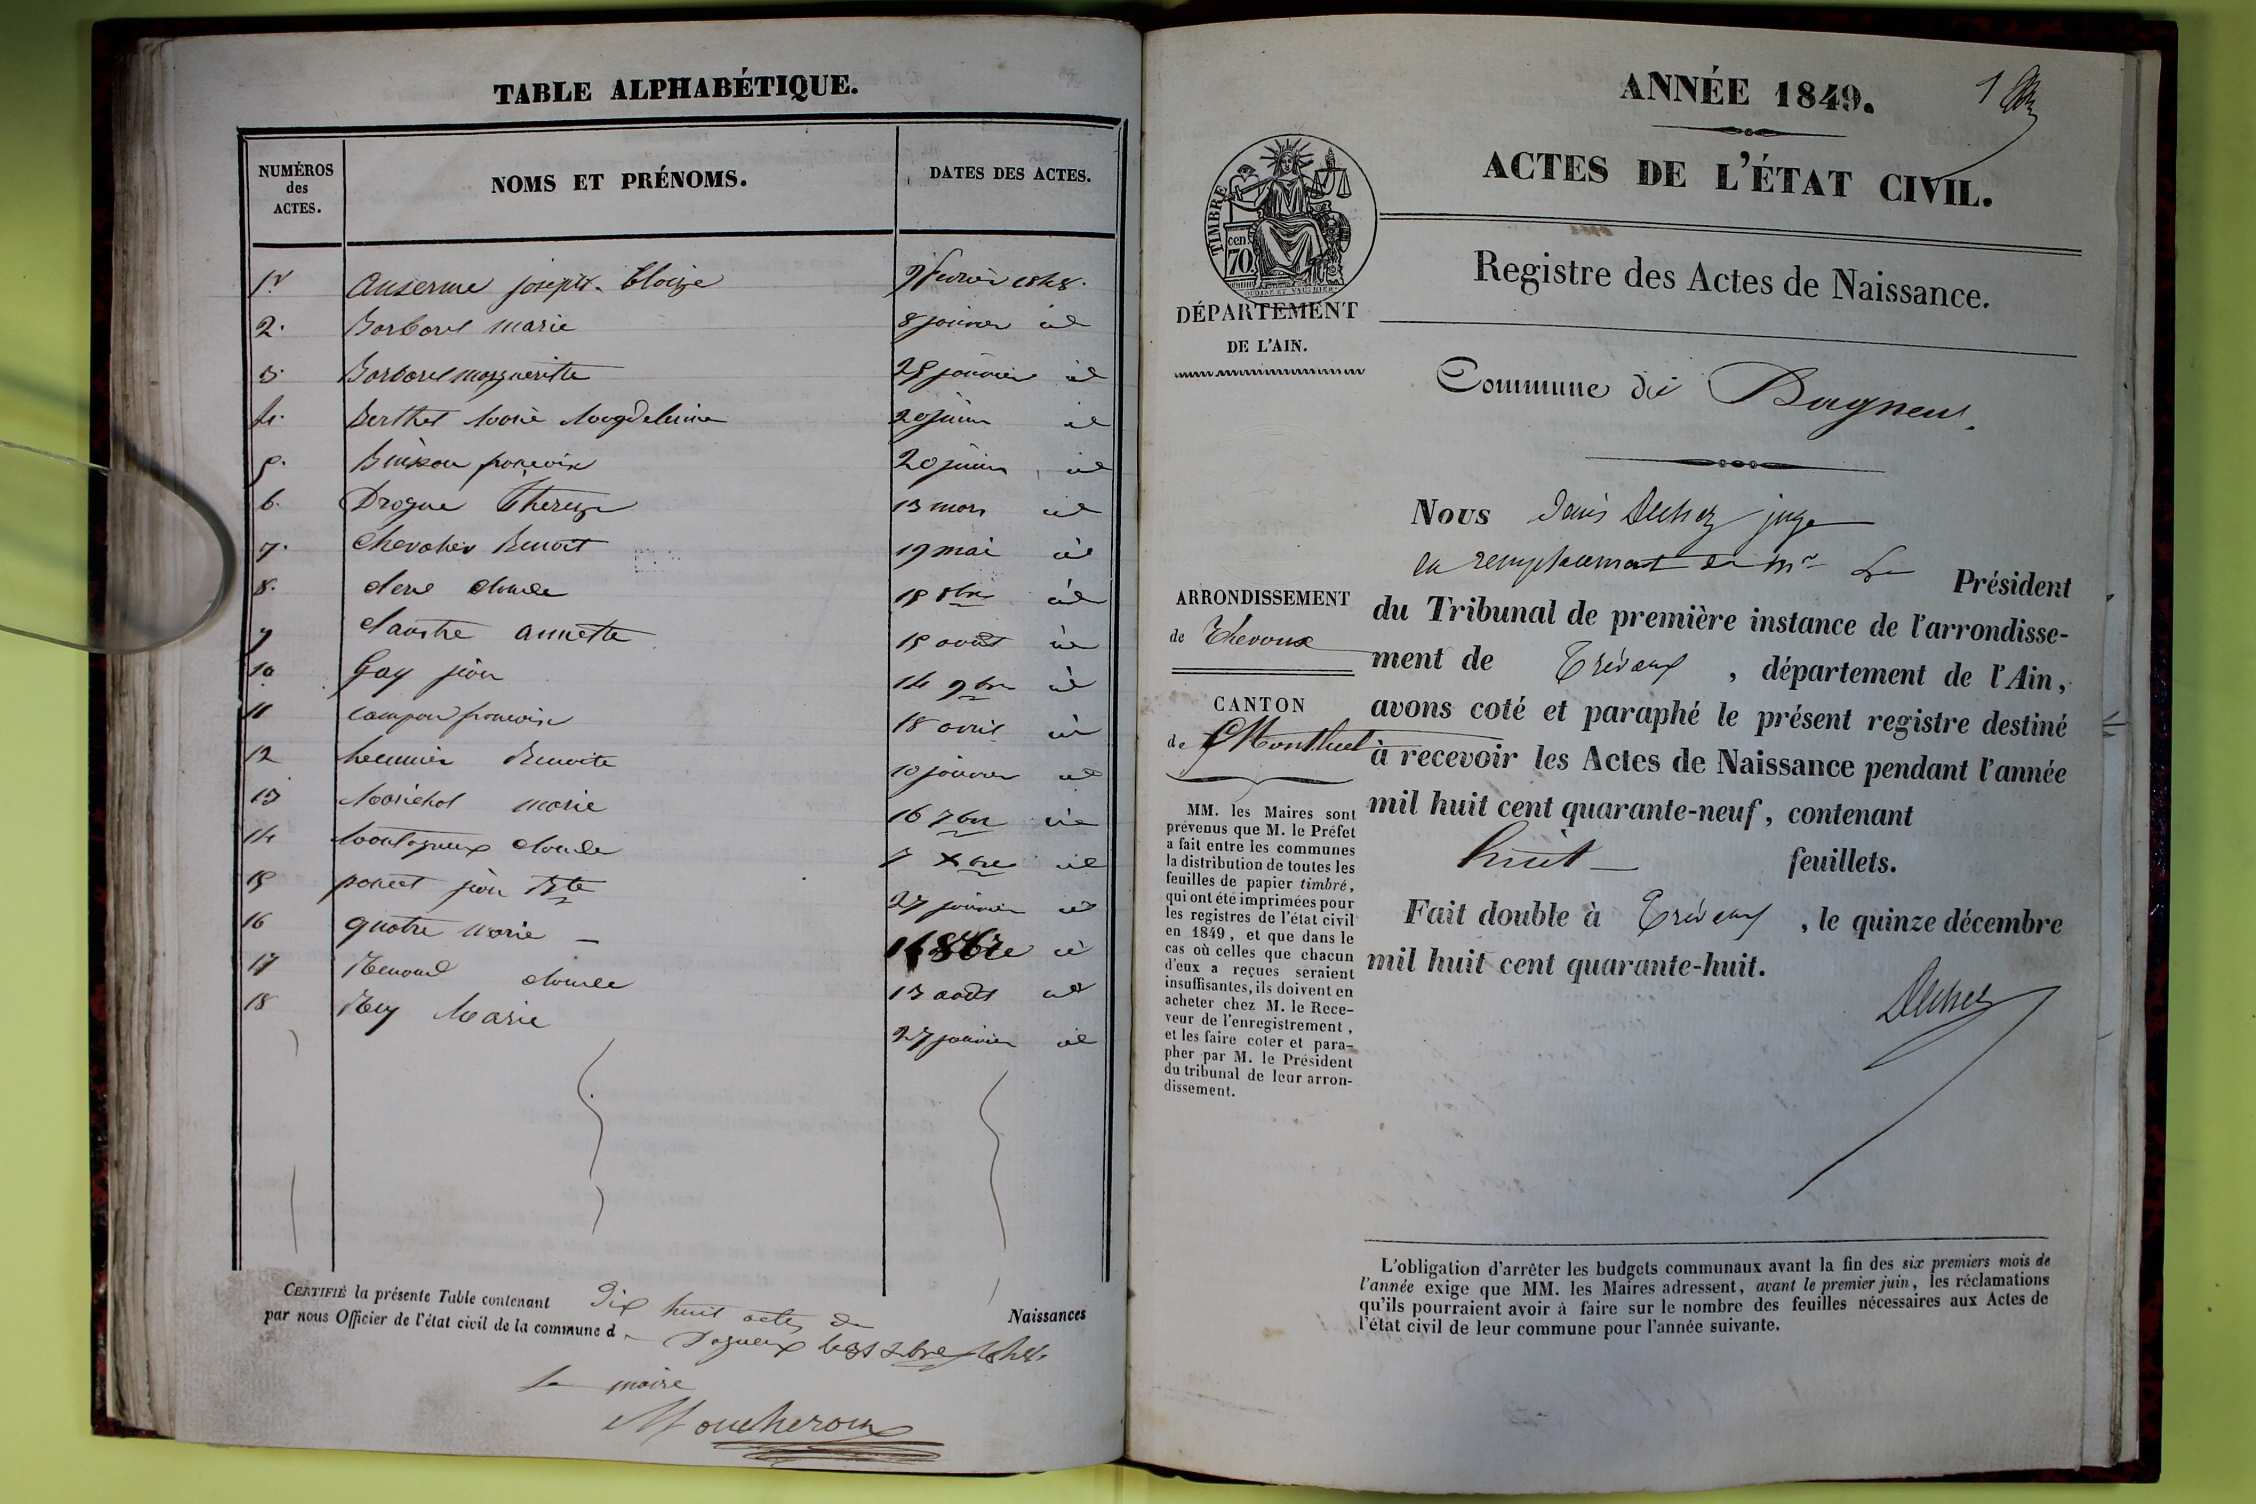 TABLE ALPHABÉTIQUE.
NUMÉROS des ACTES. NOMS ET PRÉNOMS. DATES DES ACTES.
1r Anserme joseph Eloize 9 fevrier 1848.
2. Barbarel marie 8 janvier id
3. Barbarel margueritte 28 janvier id
4. Berthet Marie Magdeleine 20 juin id
5. Buisson francoix 20 juin id
6. Drogue Thereze 13 mars id
7. Chevalier Benoit 19 mai id
8. clere claude 18 8bre id
9 claustre annette 15 août id
10 Gay jean 14 9bre id
11 campan francoix 18 avril id
12 Benoite 10 janvier id
13 Marichal marie 16 7bre id
14 Montagneux claude 7 xbre id
15 poncet jean Bte 27 janvier id
16 quatre marie id
17 Renaud claude 13 août id
18 Rey Marie 27 janvier id
CERTIFIÉ la présente Table contenant Dix huit actes de Naissances
par nous Officier de l'état civil de la commune d Dagneux le 31 xbre 1848
Le maire
Moucheroux
1
ANNÉE 1849.
ACTES DE L'ÉTAT CIVIL.
Registre des Actes de Naissance.
TIMBRE
cen. 70.
DÉPARTEMENT
DE L'AIN.
Commune de Dagneux.
ARRONDISSEMENT
de Thevoux
CANTON
de Montluel
MM. les Maires sont
prévenus que M. le Préfet
a fait entre les communes
la distribution de toutes les
feuilles de papier timbré,
qui ont été imprimées pour
les registres de l'état civil
en 1849, et que dans le
cas où celles que chacun
d'eux a reçues seraient
insuffisantes, ils doivent en
acheter chez M. le Rece-
veur de l'enregistrement,
et les faire coter et para-
pher par M. le Président
du tribunal de leur arron-
dissement.
Nous juge
en remplacement de Mr Le Président
du Tribunal de première instance de l'arrondisse-
ment de Trévoux, département de l'Ain,
avons coté et paraphé le présent registre destiné
à recevoir les Actes de Naissance pendant l'année
mil huit cent quarante-neuf, contenant
huit feuillets.
Fait double à Trévoux, le quinze décembre
mil huit cent quarante-huit.
L'obligation d'arrêter les budgets communaux avant la fin des six premiers mois de
l'année exige que MM. les Maires adressent, avant le premier juin, les réclamations
qu'ils pourraient avoir à faire sur le nombre des feuilles nécessaires aux Actes de
l'état civil de leur commune pour l'année suivante.